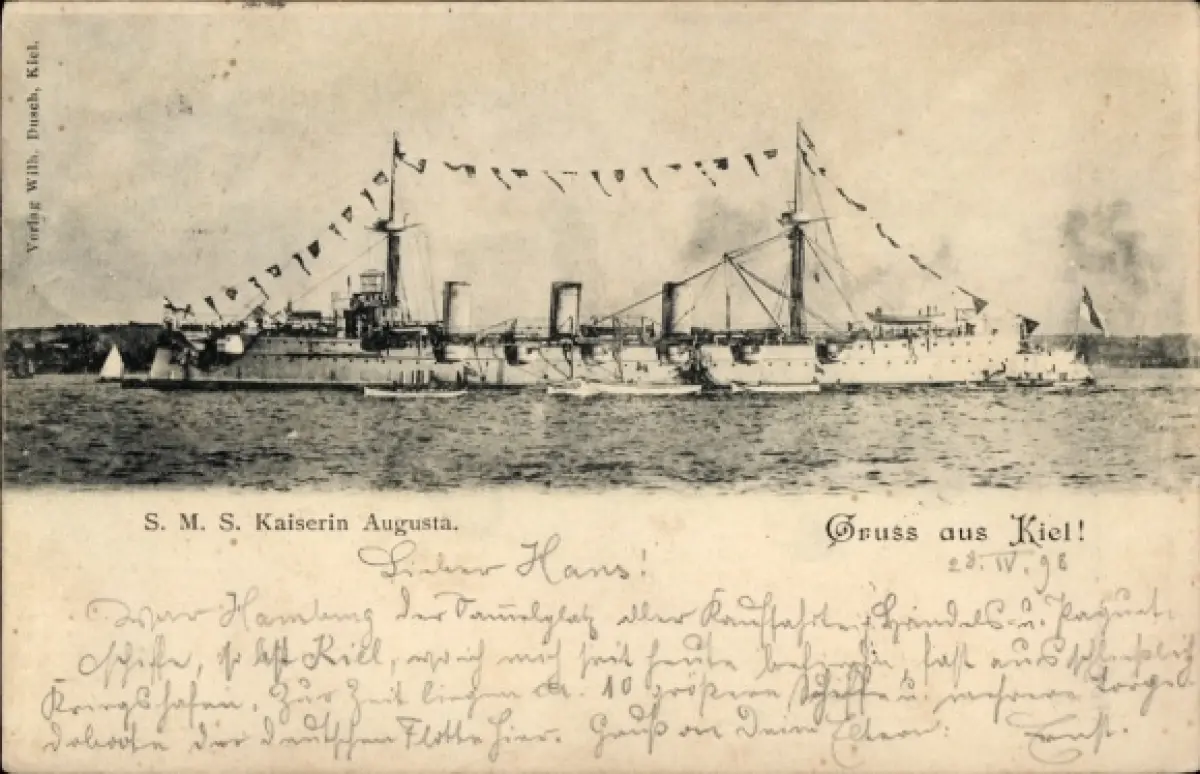 Verlag Wilh. Dusch, Kiel.
S. M. S. Kaiserin Augusta.
Gruss aus Kiel!
28. IV. 98
Lieber Hans!
War Hamburg der Sammelplatz aller Kauffahrtei, Handels- u. Paquet-
schiffe, so ist Kiel, wo ich mich seit heute befinde, fast ausschließlich
Kriegshafen. Zur Zeit liegen ca. 10 größere Schiffe u. mehrere Torpe-
doboote der deutschen Flotte hier. Gruß an Deine Eltern. Ernst.